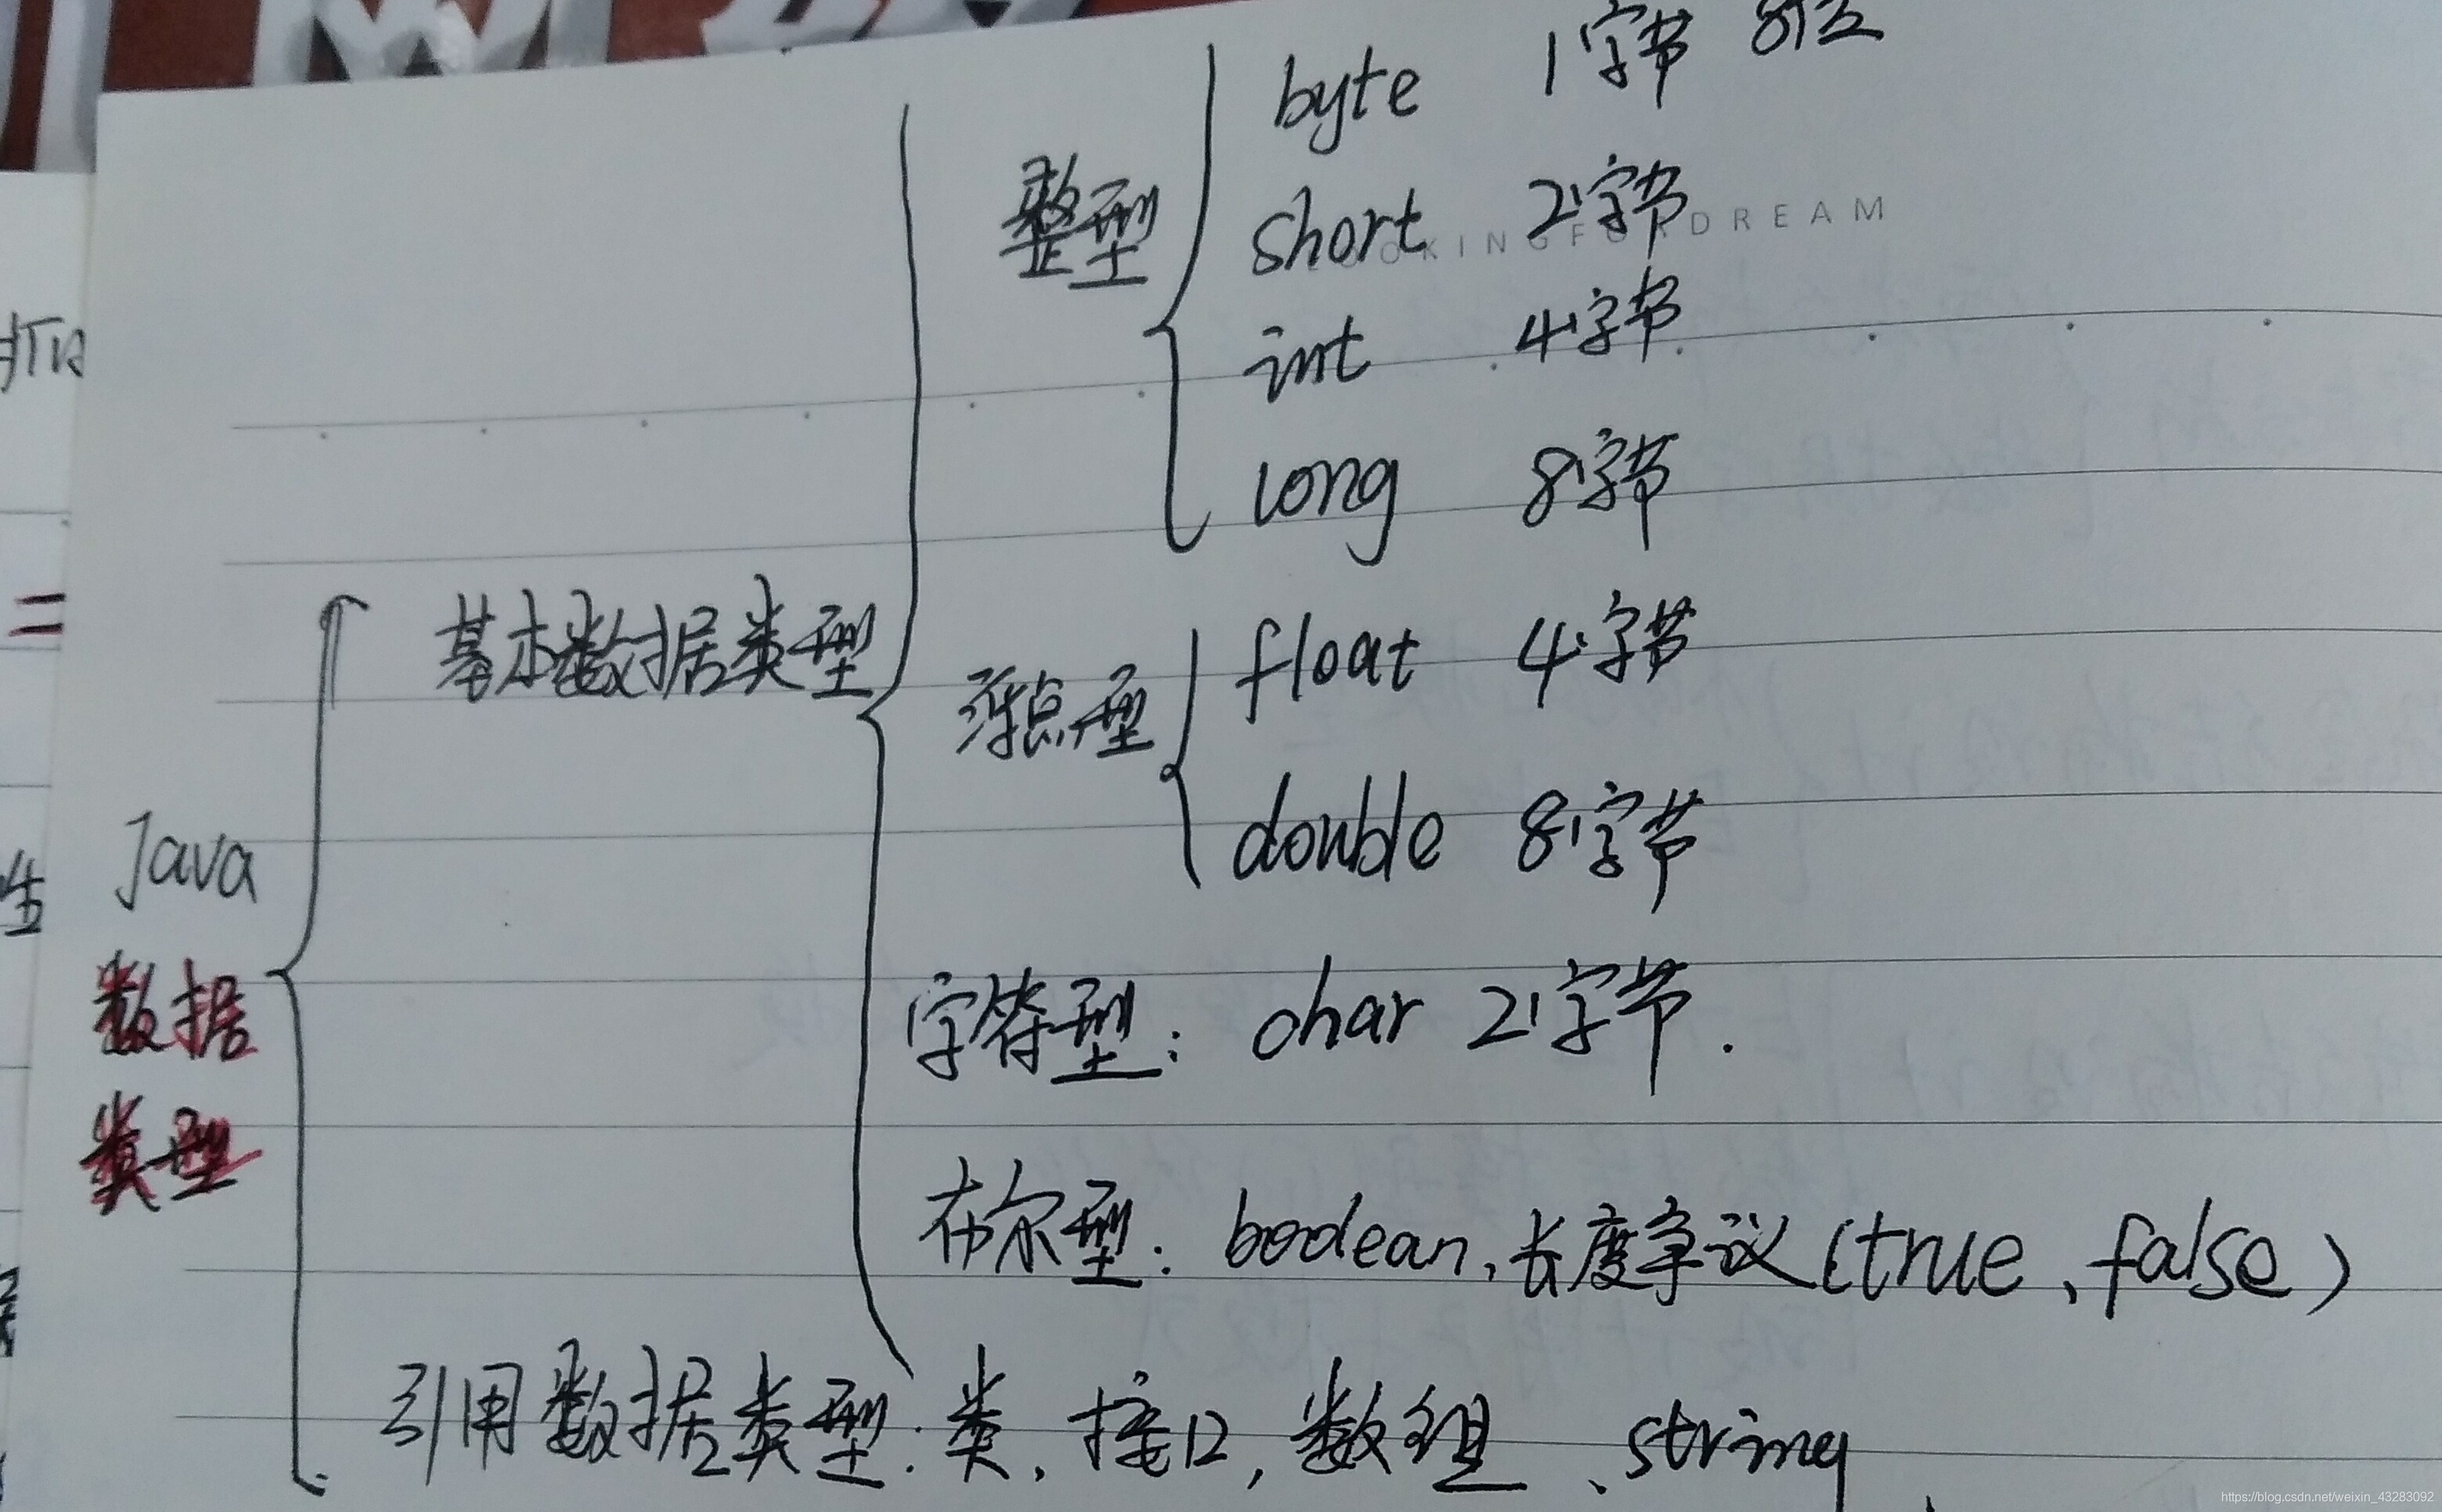 byte 1字节 8位
整型
short 2字节
LOOKINGFORDREAM
int 4字节
long 8字节
基本数据类型
float 4字节
浮点型
double 8字节
Java
数据
类型
字符型: char 2字节.
布尔型: boolean,长度争议(true、false)
引用数据类型:类、接口,数组、string
https://blog.csdn.net/weixin_43283092